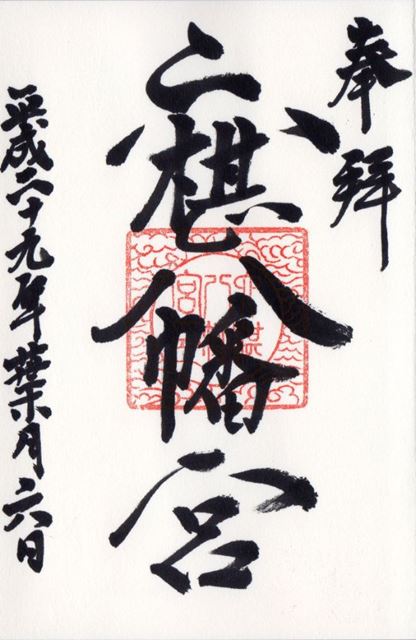 奉拝
棋八幡宮
平成二十九年葉月六日